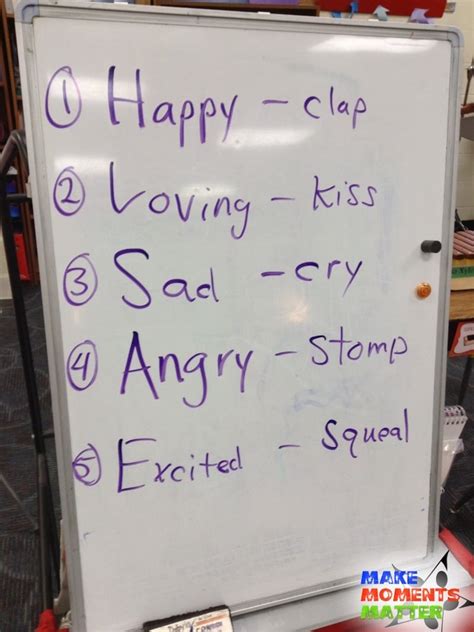 ① Happy - clap
② Loving - kiss
③ Sad - cry
④ Angry - Stomp
⑤ Excited - Squeal
MAKE
MOMENTS
MATTER